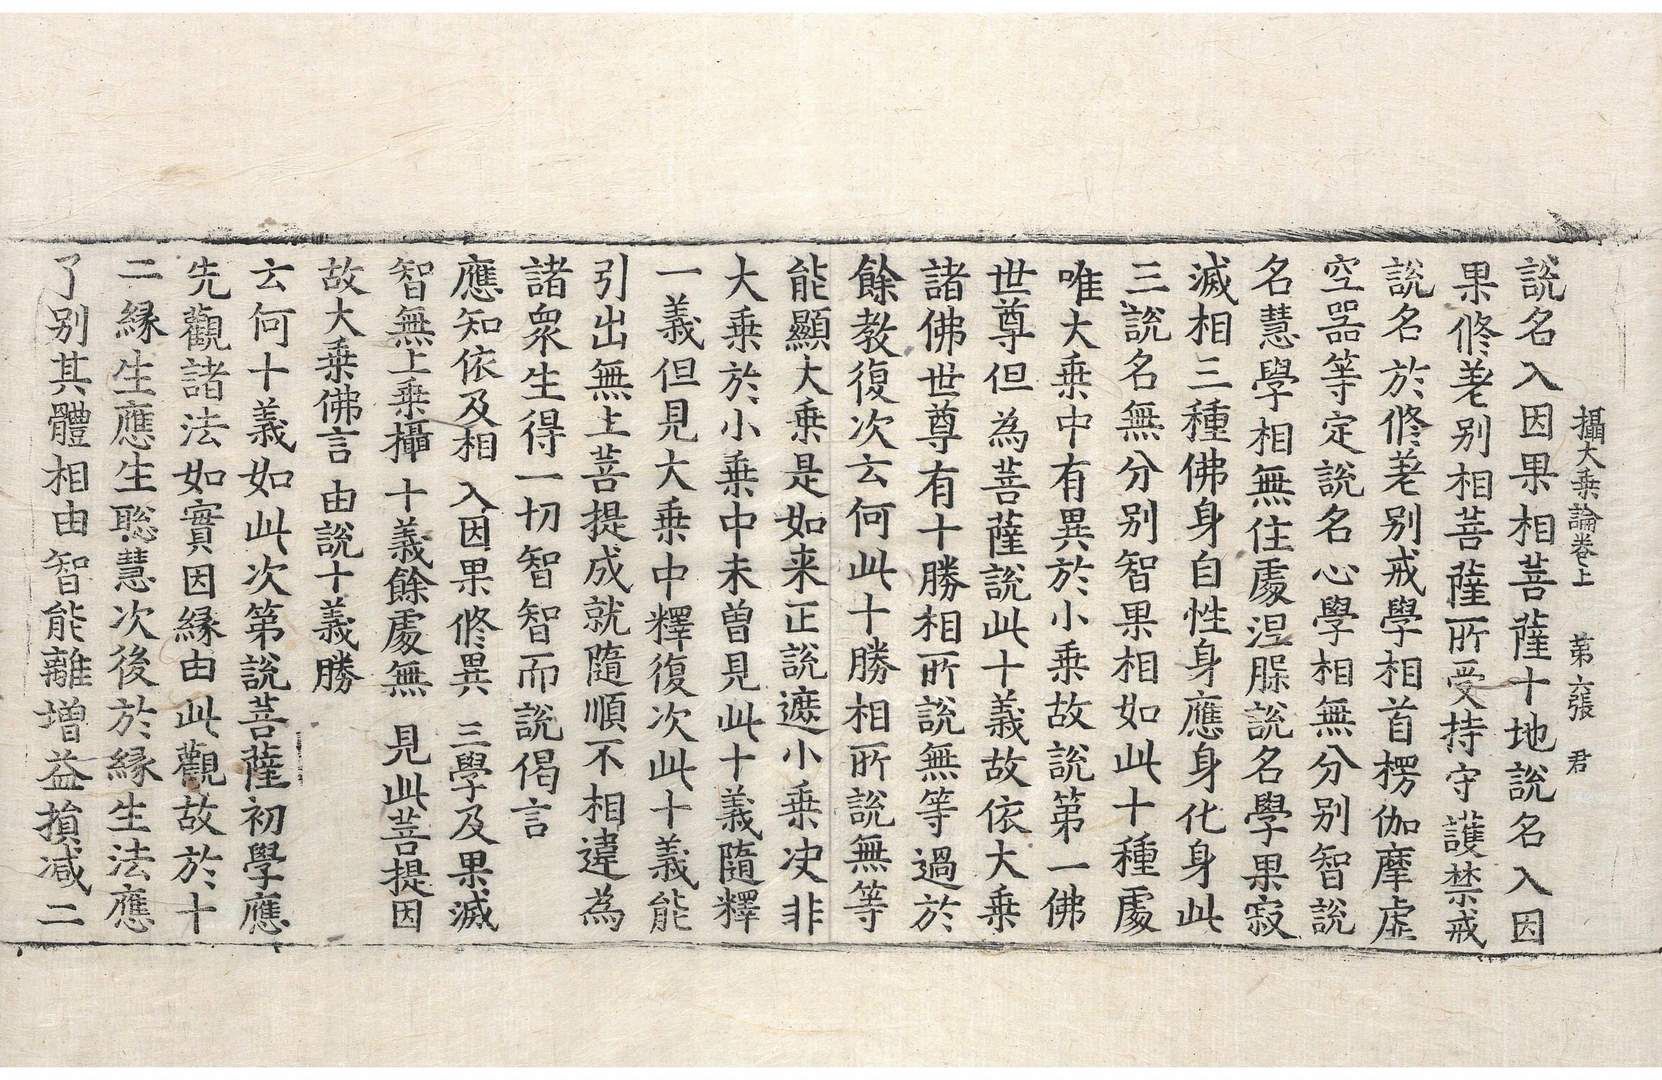 攝大乗論卷上　第六張　君
說名入因果相菩薩十地說名入因
果修差別相菩薩所受持守護禁戒
說名於修差別戒學相首楞伽摩虛
空器等定說名心學相無分別智說
名慧學相無住處涅槃說名學果寂
滅相三種佛身自性身應身化身此
三說名無分別智果相如此十種處
唯大乗中有異於小乗故說第一佛
世尊但為菩薩說此十義故依大乗
諸佛世尊有十勝相所說無等過於
餘教復次云何此十勝相所說無等
能顯大乗是如来正說遮小乗决非
大乗於小乗中未曾見此十義隨釋
一義但見大乗中釋復次此十義能
引出無上菩提成就隨順不相違為
諸衆生得一切智智而說偈言
應知依及相　入因果修異　三學及果滅
智無上乗攝　十義餘處無　見此菩提因
故大乗佛言　由說十義勝
云何十義如此次第說菩薩初學應
先觀諸法如實因緣由此觀故於十
二緣生應生聡慧次後於緣生法應
了別其體相由智能離增益損减二